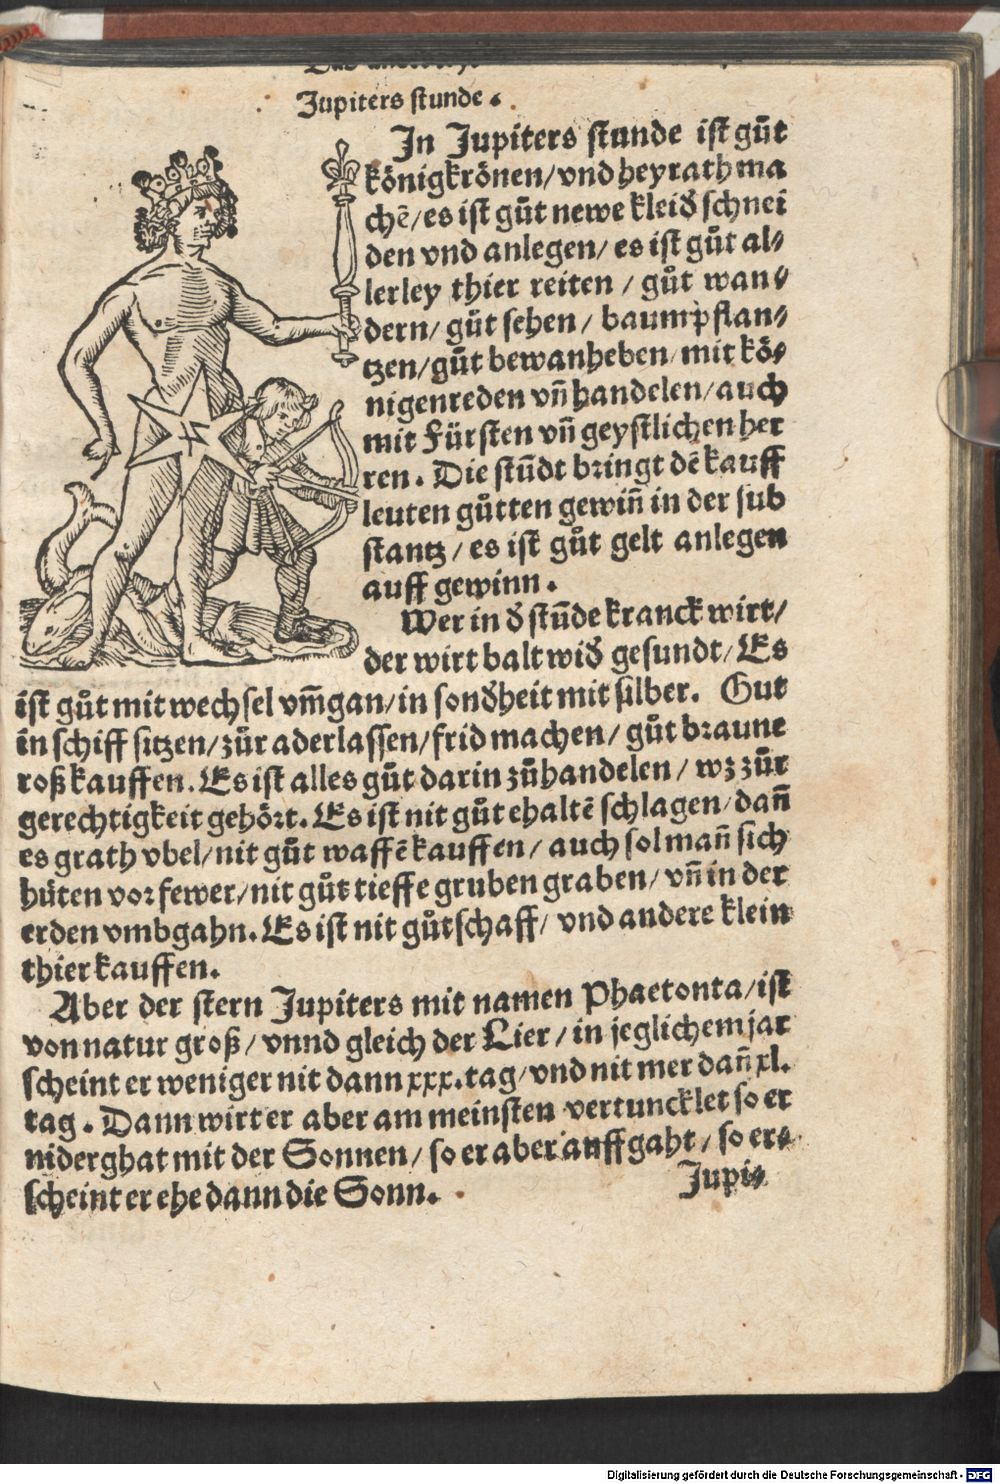 Jupiters stunde.
In Jupiters stunde ist gůt
königkrönen/vnd heyrath ma
chẽ/es ist gůt newe kleid̕ schnei
den vnd anlegen/ es ist gůt al⸗
lerley thier reiten / gůt wan⸗
dern/ gůt sehen / baump flan⸗
tzen/gůt bewanheben/ mit kö⸗
nigen reden vñ handelen/ auch
mit Fürsten vñ geystlichen her
ren. Die stũdt bringt dẽ kauff
leuten gůtten gewiñ in der sub
stantz / es ist gůt gelt anlegen
auff gewinn.
Wer in d̕ stũde kranck wirt/
der wirt balt wid̕ gesundt/ Es
ist gůt mit wechsel vm̃gan/in sond̕heit mit silber. Gut
in schiff sitzen/zůr aderlassen/frid machen/ gůt braune
roß kauffen. Es ist alles gůt darin zůhandelen/ wz zůr
gerechtigkeit gehört. Es ist nit gůt ehaltẽ schlagen/dañ
es grath vbel/nit gůt waffẽ kauffen/ auch sol mañ sich
hüten vor fewer/nit gůt tieffe gruben graben/ vñ in der
erden vmbgahn. Es ist nit gůt schaff/ vnd andere klein
thier kauffen.
Aber der stern Jupiters mit namen Phaetonta/ist
von natur groß/ vnnd gleich der Lier/ in jeglichem jar
scheint er weniger nit dann xxx. tag/ vnd nit mer dañ xl.
tag. Dann wirt er aber am meinsten vertuncklet so er
niderghat mit der Sonnen/ so er aber auffgaht/ so er⸗
scheint er ehe dann die Sonn.
Jupi⸗
Digitalisierung gefördert durch die Deutsche Forschungsgemeinschaft - DFG